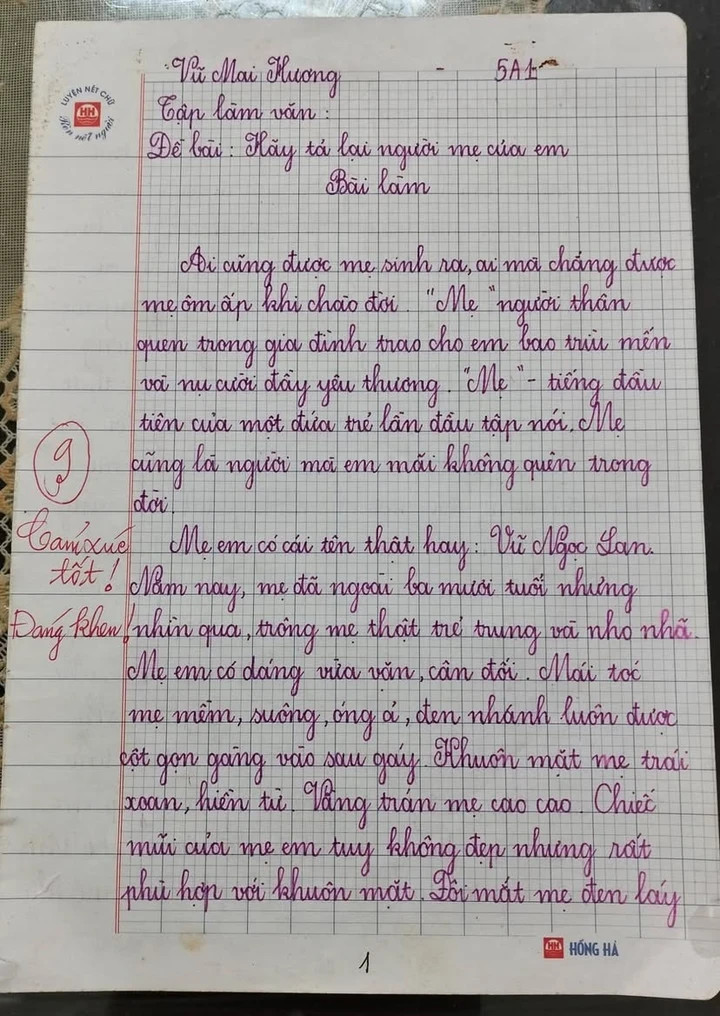 Vũ Mai Hương - 5A1
LUYỆN NÉT CHỮ
HH
Rèn nết người
Tập làm văn:
Đề bài: Hãy tả lại người mẹ của em
Bài làm
Ai cũng được mẹ sinh ra, ai mà chẳng được
mẹ ôm ấp khi chào đời. "Mẹ" người thân
quen trong gia đình trao cho em bao trìu mến
và nụ cười đầy yêu thương. "Mẹ" - tiếng đầu
tiên của một đứa trẻ lần đầu tập nói. Mẹ
cũng là người mà em mãi không quên trong
đời.
9
Cảm xúc
tốt!
Đáng khen!
Mẹ em có cái tên thật hay: Vũ Ngọc Lan.
Năm nay, mẹ đã ngoài ba mươi tuổi nhưng
nhìn qua, trông mẹ thật trẻ trung và nho nhã.
Mẹ em có dáng vừa vặn, cân đối. Mái tóc
mẹ mềm, suông, óng ả, đen nhánh luôn được
cột gọn gàng vào sau gáy. Khuôn mặt mẹ trái
xoan, hiền từ. Vầng trán mẹ cao cao. Chiếc
mũi của mẹ em tuy không đẹp nhưng rất
phù hợp với khuôn mặt. Đôi mắt mẹ đen láy
HH HỒNG HÀ
1